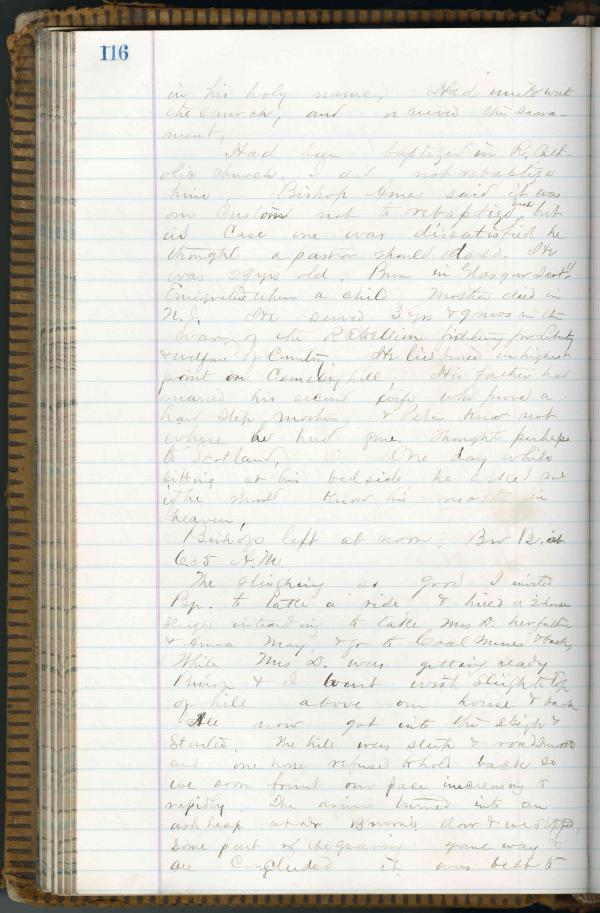 116
in his holy name, Had united with
the Church, and received the Sacra-
ment,
Had been baptized in R. Cath-
olic church. I did not rebaptize
him. Bishop Ames said it was
our Custom not to rebaptize such but
in Case one was dissatisfied he
thought a pastor should do so. He
was 29 yrs old. Born in Glasgow Scotd
Emigrated when a child Mother died in
N.J. He served 3 yrs & 9 mos in the
War of the Rebellion fighting for Liberty
& welfare of Country, He lies buried in highest
point on Cemetery hill, His father had
married his second wife who proved a
hard step mother & Peter knew not
where he had gone. Thought perhaps
to Scotland, One day while
sitting at his bed side he asked me
if he should know his mother in
heaven,
Bishop left at noon. Bro B. at
6:35 A.M.
The sleighing so good I invited
Bp. to take a ride & hired a 2 horse
sleigh intending to take Mrs D. her father
& Anna May, & go to Coal Mines & back,
While Mrs D. was getting ready
Bishop & I went with sleigh to top
of hill above our house & back
All now got into the sleigh &
Started. The hill was steep & road smooth
and one horse refused to hold back so
we soon found our pace increasing to
rapidly The driver turned into an
ash heap at door & we stopped,
Some part of the gearing gave way &
all Concluded it was best to